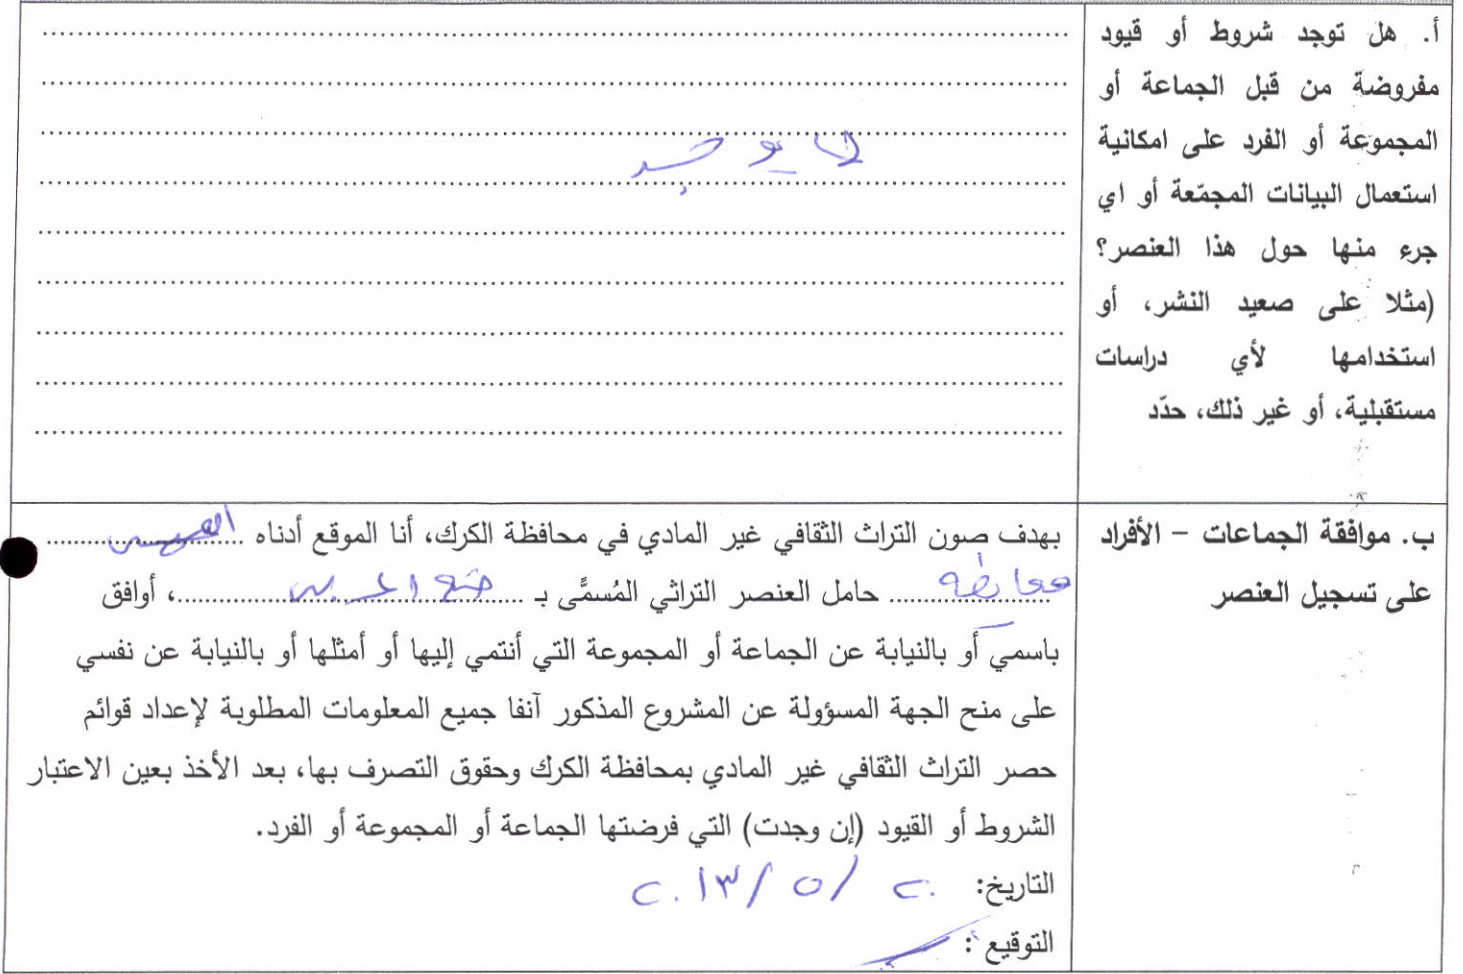 أ. هل توجد شروط أو قيود
مفروضة من قبل الجماعة أو
المجموعة أو الفرد على امكانية
استعمال البيانات المجمّعة أو اي
جرء منها حول هذا العنصر؟
(مثلا على صعيد النشر، أو
استخدامها لأي دراسات
مستقبلية، أو غير ذلك، حدّد
لا يوجد
ب. موافقة الجماعات – الأفراد
على تسجيل العنصر
بهدف صون التراث الثقافي غير المادي في محافظة الكرك، أنا الموقع أدناه
حامل العنصر التراثي المُسمَّى بـ ، أوافق
باسمي أو بالنيابة عن الجماعة أو المجموعة التي أنتمي إليها أو أمثلها أو بالنيابة عن نفسي
على منح الجهة المسؤولة عن المشروع المذكور آنفا جميع المعلومات المطلوبة لإعداد قوائم
حصر التراث الثقافي غير المادي بمحافظة الكرك وحقوق التصرف بها، بعد الأخذ بعين الاعتبار
الشروط أو القيود (إن وجدت) التي فرضتها الجماعة أو المجموعة أو الفرد.
التاريخ: ٢٠ / ٥ / ٢٠١٣
التوقيع :